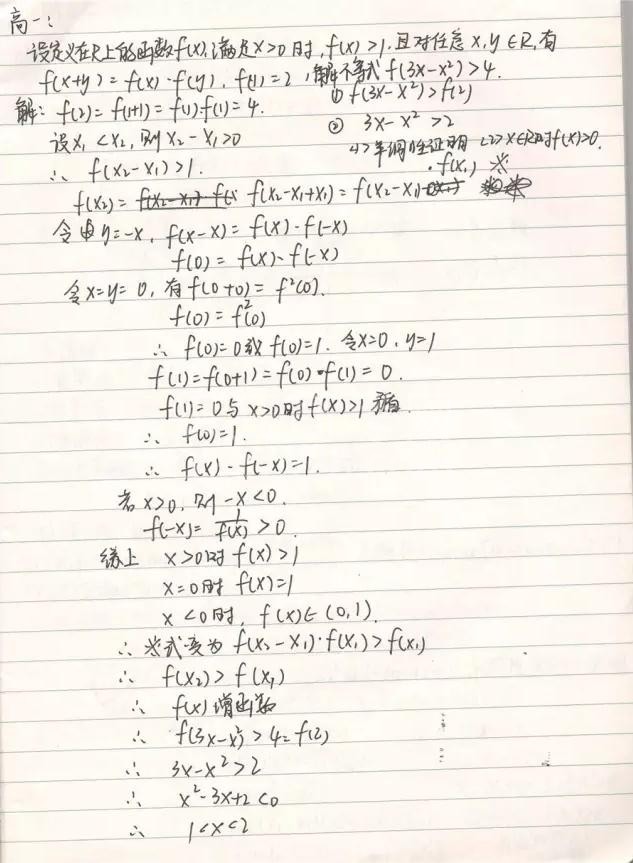 高一:
设定义在R上的函数f(x), 满足x>0时, f(x)>1. 且对任意x,y∈R, 有
f(x+y)=f(x)·f(y), f(1)=2, 解不等式f(3x-x²)>4.
解: f(2)=f(1+1)=f(1)·f(1)=4. ① f(3x-x²)>f(2)
设x₁<x₂, 则x₂-x₁>0 ② 3x-x²>2
∴ f(x₂-x₁)>1. <1>单调性证明 <2>x∈R时f(x)>0.
f(x₂)= f(x₂-x₁+x₁)=f(x₂-x₁)·f(x₁) ※
令y=-x, f(x-x)=f(x)·f(-x)
f(0)=f(x)·f(-x)
令x=y=0, 有f(0+0)=f²(0).
f(0)=f²(0)
∴ f(0)=0或f(0)=1. 令x=0, y=1
f(1)=f(0+1)=f(0)·f(1)=0.
f(1)=0与x>0时f(x)>1矛盾.
∴ f(0)=1.
∴ f(x)·f(-x)=1.
若x>0, 则-x<0.
f(-x)=1/f(x)>0.
综上 x>0时f(x)>1
x=0时f(x)=1
x<0时, f(x)∈(0,1).
∴ ※式变为f(x₂-x₁)·f(x₁)>f(x₁)
∴ f(x₂)>f(x₁)
∴ f(x)增函数
∴ f(3x-x²)>4=f(2)
∴ 3x-x²>2
∴ x²-3x+2<0
∴ 1<x<2